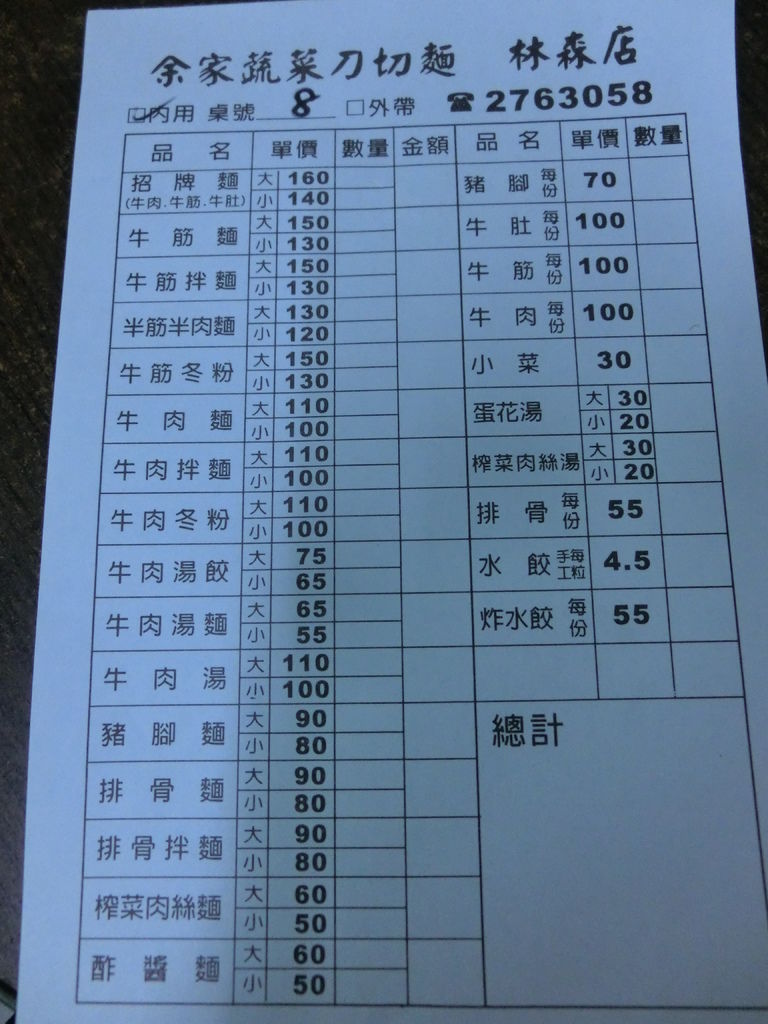 余家蔬菜刀切麵 林森店
☑內用 桌號 8 □外帶 ☎2763058
品名 單價 數量 金額 品名 單價 數量
招牌麵 (牛肉.牛筋.牛肚) 大 160 小 140
牛筋麵 大 150 小 130
牛筋拌麵 大 150 小 130
半筋半肉麵 大 130 小 120
牛筋冬粉 大 150 小 130
牛肉麵 大 110 小 100
牛肉拌麵 大 110 小 100
牛肉冬粉 大 110 小 100
牛肉湯餃 大 75 小 65
牛肉湯麵 大 65 小 55
牛肉湯 大 110 小 100
豬腳麵 大 90 小 80
排骨麵 大 90 小 80
排骨拌麵 大 90 小 80
榨菜肉絲麵 大 60 小 50
酢醬麵 大 60 小 50
豬腳 每份 70
牛肚 每份 100
牛筋 每份 100
牛肉 每份 100
小菜 30
蛋花湯 大 30 小 20
榨菜肉絲湯 大 30 小 20
排骨 每份 55
水餃 手工 每粒 4.5
炸水餃 每份 55
總計